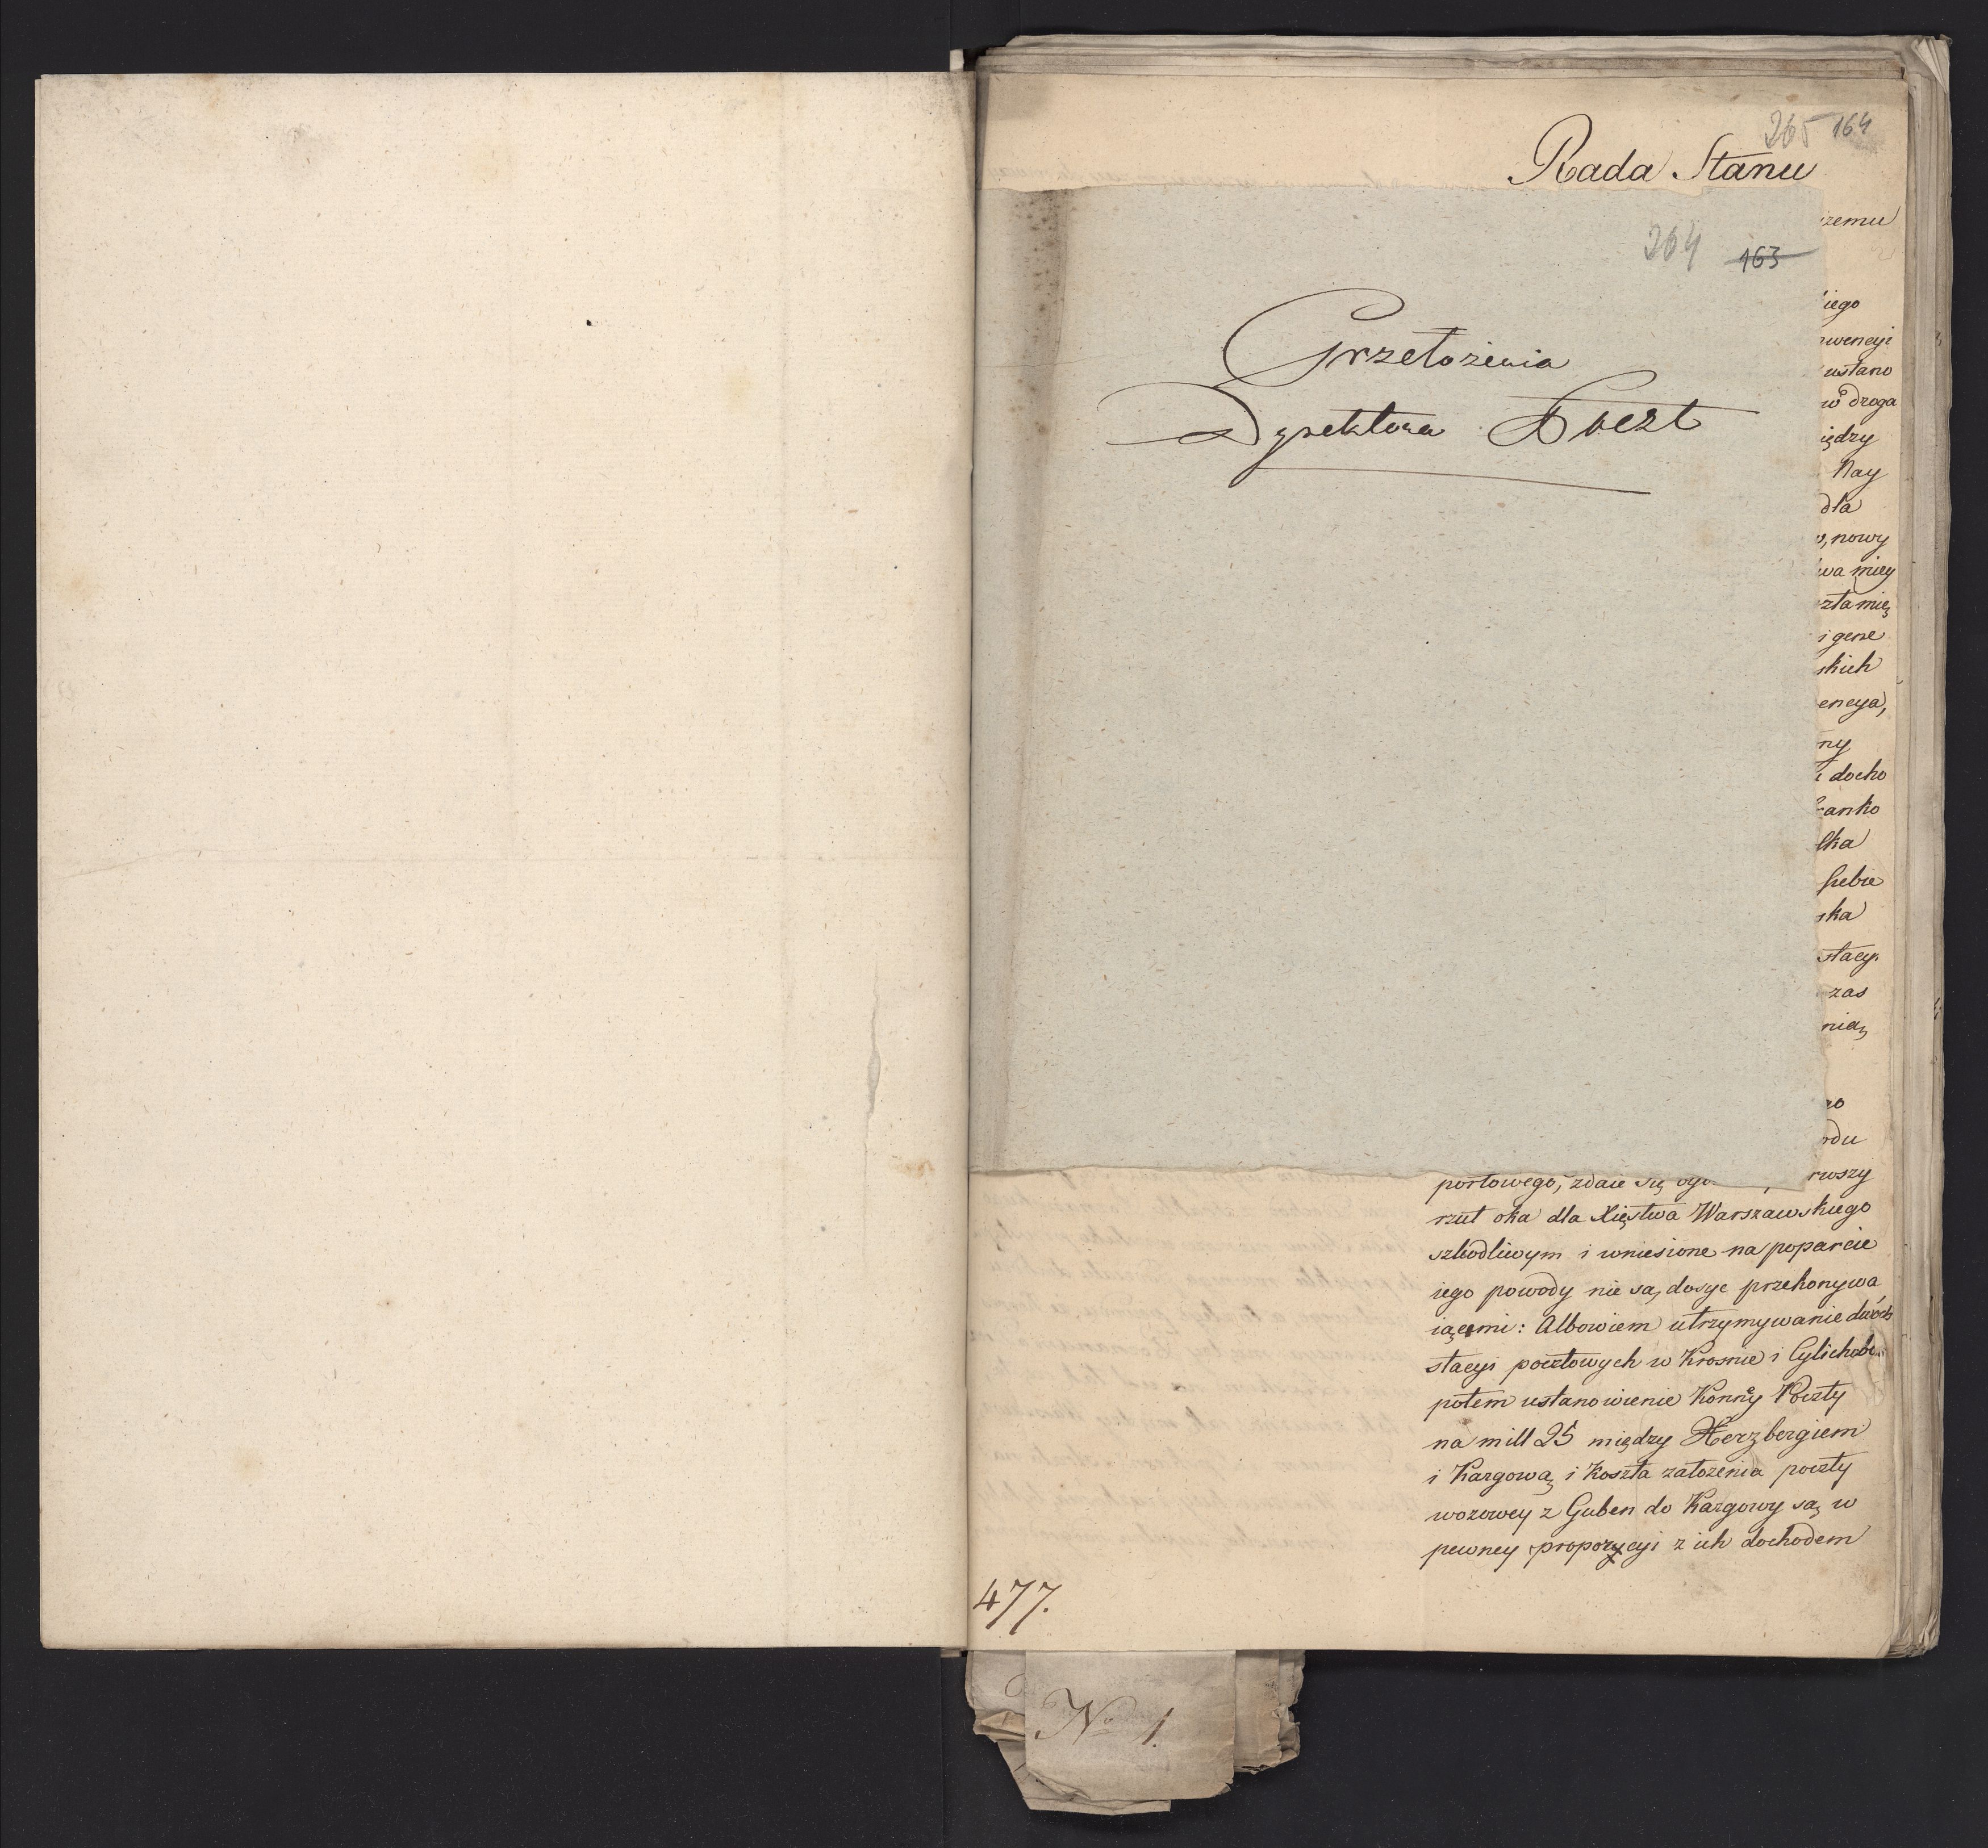 265 164
Rada Stanu
264 163
Przełożenia
Dyrektora Poczt
szemu
iego
nwencyi
ustano
w droga
iędzy
Nay
dla
w, nowy
wa miey
zta mię
i gene
skich
encya,
ny
i docho
Franko
lka
siebie
ska
stacyi
zas
nią
go
odu
rwszy
portowego, zdaie się
rzut oka dla Xięstwa Warszawskiego
szkodliwym i wniesione na poparcie
iego powody nie są dosyc przekonywa
iącemi: Albowiem utrzymywanie dwóch
stacyi pocztowych w Krosnie i Cylichow
potem ustanowienie Konney Poczty
na mill 25 między Herzbergiem
i Kargową i Koszta założenia poczty
wozowey z Guben do Kargowy są w
pewney proporycyi z ich dochodem
477.
No 1.